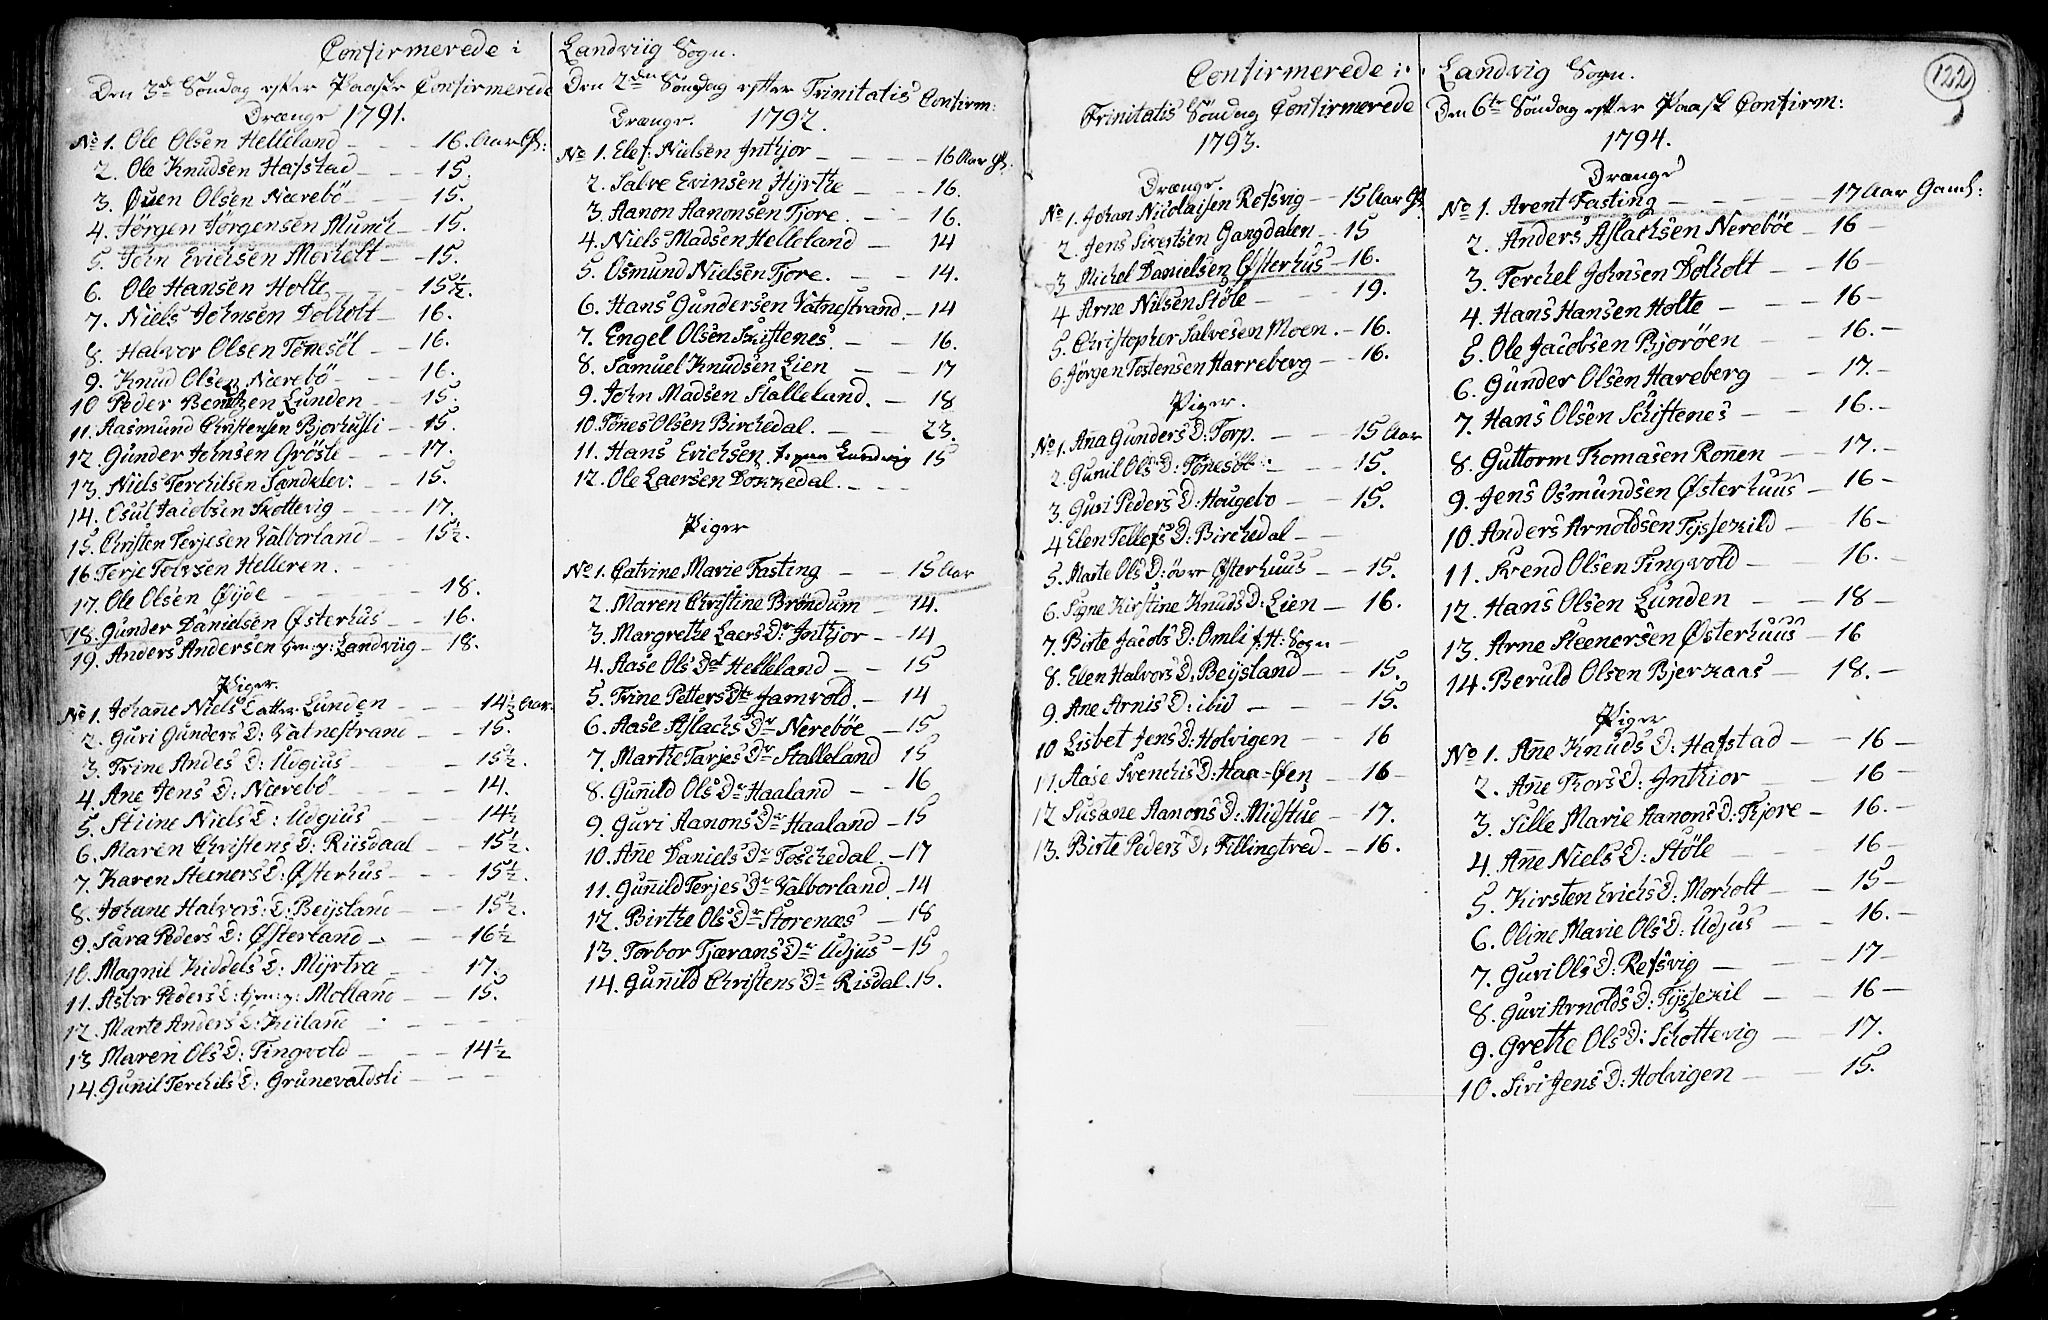 Confirmerede i Landviig Sogn.
Den 3de Söndag efter Paaske Confirmerede
Drænge 1791.
No 1. Ole Olsen Helleland - - - 16. Aar Gl:
2. Ole Knudsen Hafstad - - 15.
3. Ouen Olsen Nærebö - - 15.
4. Jörgen Jörgensen Munch - 15.
5. John Erichsen Morholt - 15.
6. Ole Hansen Holte - - 15½.
7. Niels Johnsen Dolholt - 16.
8. Halvor Olsen Tönesöl - - 16.
9. Knud Olsen Nærebö - - 16.
10 Peder Lunden - - 15.
11. Aasmund Christensen Bjorhusli - 15.
12. Gunder Johnsen Gröste - - 17.
13. Niels Terchilsen Sandklev: - - 15.
14. Osul Jacobsen Skottevig - - - 17.
15. Christen Terjesen Valborland - - 15½.
16 Terje Tolvsen Helleren.
17. Ole Olsen Öÿde - - - 18.
18. Gunder Danielsen Østerhus - - 16.
19. Anders Andersen Landviig - 18.
Piger.
No 1. Johane Niels Datter Lunden - - - 14½ Aar.
2. Guri Gunders D: Vatnestrand - - 15.
3. Trine Andes D: Udgius - - - 15½.
4. Ane Jens D: Nærebö - - - 14.
5. Stiine Niels D: Udgjus - - 14½
6. Maren Christens D: Riisdaal - - 15½.
7. Karen Steeners D: Østerhus - - 15½.
8. Johane Halvors: D: Beÿsland - - 15½.
9. Sara Peders D: Østerland - - - 16½
10. Magnil Kiddels D: Mÿrtræ - - 17.
11. Asbor Peders D: Molland - - 15.
12. Marte Anders D: Kiiland - - -
13 Maren Ols D: Tingvold - - - 14½
14. Gunil Terchils D: Grunevaldsli - - -
Den 2den Söndag efter Trinitatis Confirm:
Drænge. 1792.
No 1. Elef: Nielsen Inthjor - - - - 16 Aar Gl.
2. Salve Evinsen Hÿrthe - - - 16.
3. Aanon Aanonsen Tjore. - - 16.
4. Niels Madsen Helleland - 14
5. Osmund Nielsen Tjore. - - 14.
6. Hans Gundersen Vatnestrand. - 14
7. Engel Olsen Skiftenes. - - 16.
8. Samuel Knudsen Lien - - 17
9. John Madsen Stalleland. - 18
10. Tönes Olsen Birchedal. - - 23.
11. Hans Erichsen Landvig 15
12. Ole Laersen Dokkedal. - - -
Piger
No 1. Catrine Marie Fasting - - 15 Aar
2. Maren Christine Bröndum - 14.
3. Margrethe Laers Dr Inthjor - 14
4. Aase Ols Dat Helleland - - 15
5. Trine Petters Dtr Jamvold. - 14
6. Aase Aslachs Dr Nereböe - 15
7. Marthe Tarjes Dr Stalleland 15
8. Gunild Ols Dr Haaland - - 16
9. Guri Aanons Dr Haaland - 15
10. Ane Daniels Dr Toschedal. - 17
11. Gunild Terjes Dr Valborland. - 14
12. Birthe Ols Dr Storenæs - 18
13. Torbor Tjærans Dr Udjus - 15
14. Gunild Christens Dr Risdal. 15.
Confirmerede i Landvig Sogn.
122
Trinitatis Söndag Confirmerede
1793.
Drænge.
No 1. Johan Nicolaisen Refsvig - 15 Aar Gl.
2. Jens Sivertsen Gangdalen - 15
3 Michel Danielsen Østerhus - 16.
4 Arne Nilsen Stöle - - - 19.
5. Christopher Salvesen Moen. - 16.
6. Jörgen Tostensen Harreberg - - 16.
Piger.
No 1. Ana Gunders D: Torp. - - - 15 Aar
2. Gunil Ols D: Tönesöl - - - 15.
3. Guri Peders D: Hougebo - - 15.
4 Elen Tellefs D: Birchedal - -
5. Marte Ols D: över Østerhuus - - 15.
6. Signe Kirstine Knuds D: Lien - 16.
7. Birte Jacobs D: Omli f. H: Sogn -
8. Elen Halvors D: Beÿsland - - 15.
9. Ane Arnis D: ibid - - - 15.
10 Lisbet Jens D: Holvigen - - 16
11. Aase Svenchis D: Haa-Øen - - 16 -
12 Susane Aanons D: Midstue - - 17.
13. Birte Peders D: Fillingtved - - 16.
Den 6te Söndag efter Paask Confirm:
1794.
Drænge
No 1. Arent Fasting - - - - 17 Aar Gaml:
2. Anders Aslachsen Nereböe - 16 -
3. Terchel Johnsen Dolholt - - 16 -
4. Hans Hansen Holte - - - 16 -
5. Ole Jacobsen Bjoröen - - - 16. -
6. Gunder Olsen Hareberg - - 17. -
7. Hans Olsen Schiftenes - - - 16. -
8. Guttorm Thomasen Ronen - - 17. -
9. Jens Osmundsen Østerhuus - 16 -
10. Anders Arnoldsen Tÿssekild - - 16 -
11. Svend Olsen Tingvold - - - 16. -
12. Hans Olsen Lunden - - 18 -
13. Arne Steenersen Østerhuus - 16
14. Beruld Olsen Bjerkaas - - 18. -
Piger
No 1. Ane Knuds D: Hafstad - - 16 -
2. Ane Thors D: Inthior - - 16 -
3. Sille Marie Aanons D: Thjore - 16. -
4. Ane Niels D: Stöle - - - 16 -
5. Kirsten Erichs D: Morholt - - 15 -
6. Oline Marie Ols D: Udjus - - 16. -
7. Guri Ols D: Refsvig - - - 17 -
8. Guri Arnolds D: Tÿssekil - - 16 -
9. Grethe Ols D: Schottevig - - 17.
10. Siri Jens D: Holvigen - - - 15.